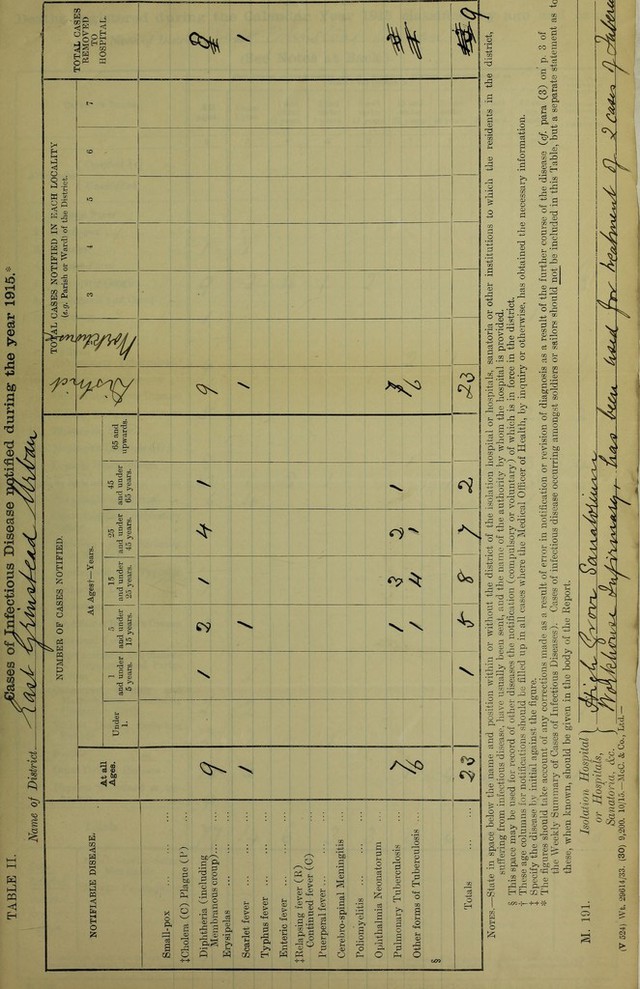 TABLE II.
Cases of Infectious Disease notified during the year 1915.*
Name of District East Grinstead Urban
NOTIFIABLE DISEASE.
NUMBER OF CASES NOTIFIED.
TOTAL CASES NOTIFIED IN EACH LOCALITY
(e.g. Parish or Ward) of the District.
TOTAL CASES
REMOVED
TO
HOSPITAL.
At all
Ages.
At Ages†—Years.
Under
1.
1
and under
5 years.
5
and under
15 years.
15
and under
25 years.
25
and under
45 years.
45
and under
65 years.
65 and
upwards.
District
Workhouse
3
4
5
6
7
Small-pox ... ... ...
‡Cholera (C) Plague (P)
Diphtheria (including
Membranous croup)... ... 9 1 2 1 4 1 9
Erysipelas ... ... ... 1 1 1 1
Scarlet fever ... ... ...
Typhus fever ... ...
Enteric fever ... ... ...
‡Relapsing fever (R)
Continued fever (C)
Puerperal fever ... ... ...
Cerebro-spinal Meningitis ...
Poliomyelitis ... ... ...
Ophthalmia Neonatorum ...
Pulmonary Tuberculosis ... 7 1 3 2 1 7
Other forms of Tuberculosis ... 6 1 4 1 6
§
Totals ... ... 23 1 5 8 7 2 23 9
NOTES.—State in space below the name and position within or without the district of the isolation hospital or hospitals, sanatoria or other institutions to which the residents in the district,
suffering from infectious disease, have usually been sent, and the name of the authority by whom the hospital is provided.
§ This space may be used for record of other diseases the notification (compulsory or voluntary) of which is in force in the district.
† These age columns for notifications should be filled up in all cases where the Medical Officer of Health, by inquiry or otherwise, has obtained the necessary information.
‡ Specify the disease by initial against the figure.
* The figures should take account of any corrections made as a result of error in notification or revision of diagnosis as a result of the further course of the disease (cf. para (3) on p. 3 of
the Weekly Summary of Cases of Infectious Diseases). Cases of infectious disease occurring amongst soldiers or sailors should not be included in this Table, but a separate statement as to
these, when known, should be given in the body of the Report.
M. 191.
Isolation Hospital
or Hospitals,
Sanatoria, &c.
High Grove Sanatorium
Workhouse Infirmary, has been used for treatment of 2 cases of
(V 524) Wt. 29614/33. (30) 5,200. 10/15.—McC. & Co., Ltd.—